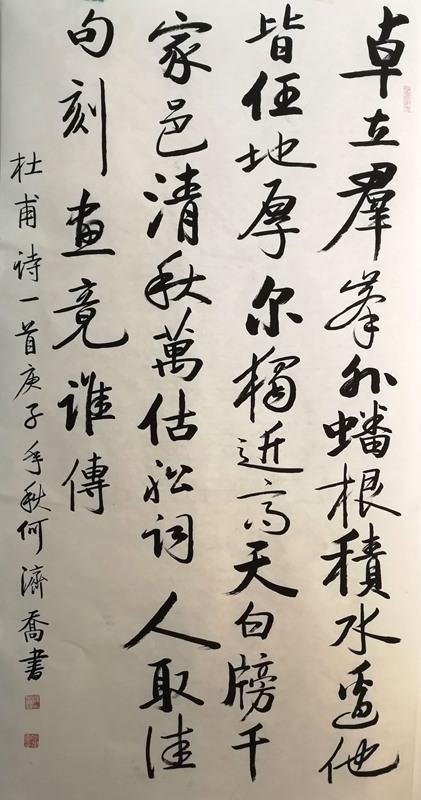 卓立羣峯外蟠根積水邊他
皆任地厚尔獨近高天白牓千
家邑清秋萬估船詞人取佳
句刻畫竟誰傳
杜甫詩一首庚子年秋何濟喬書